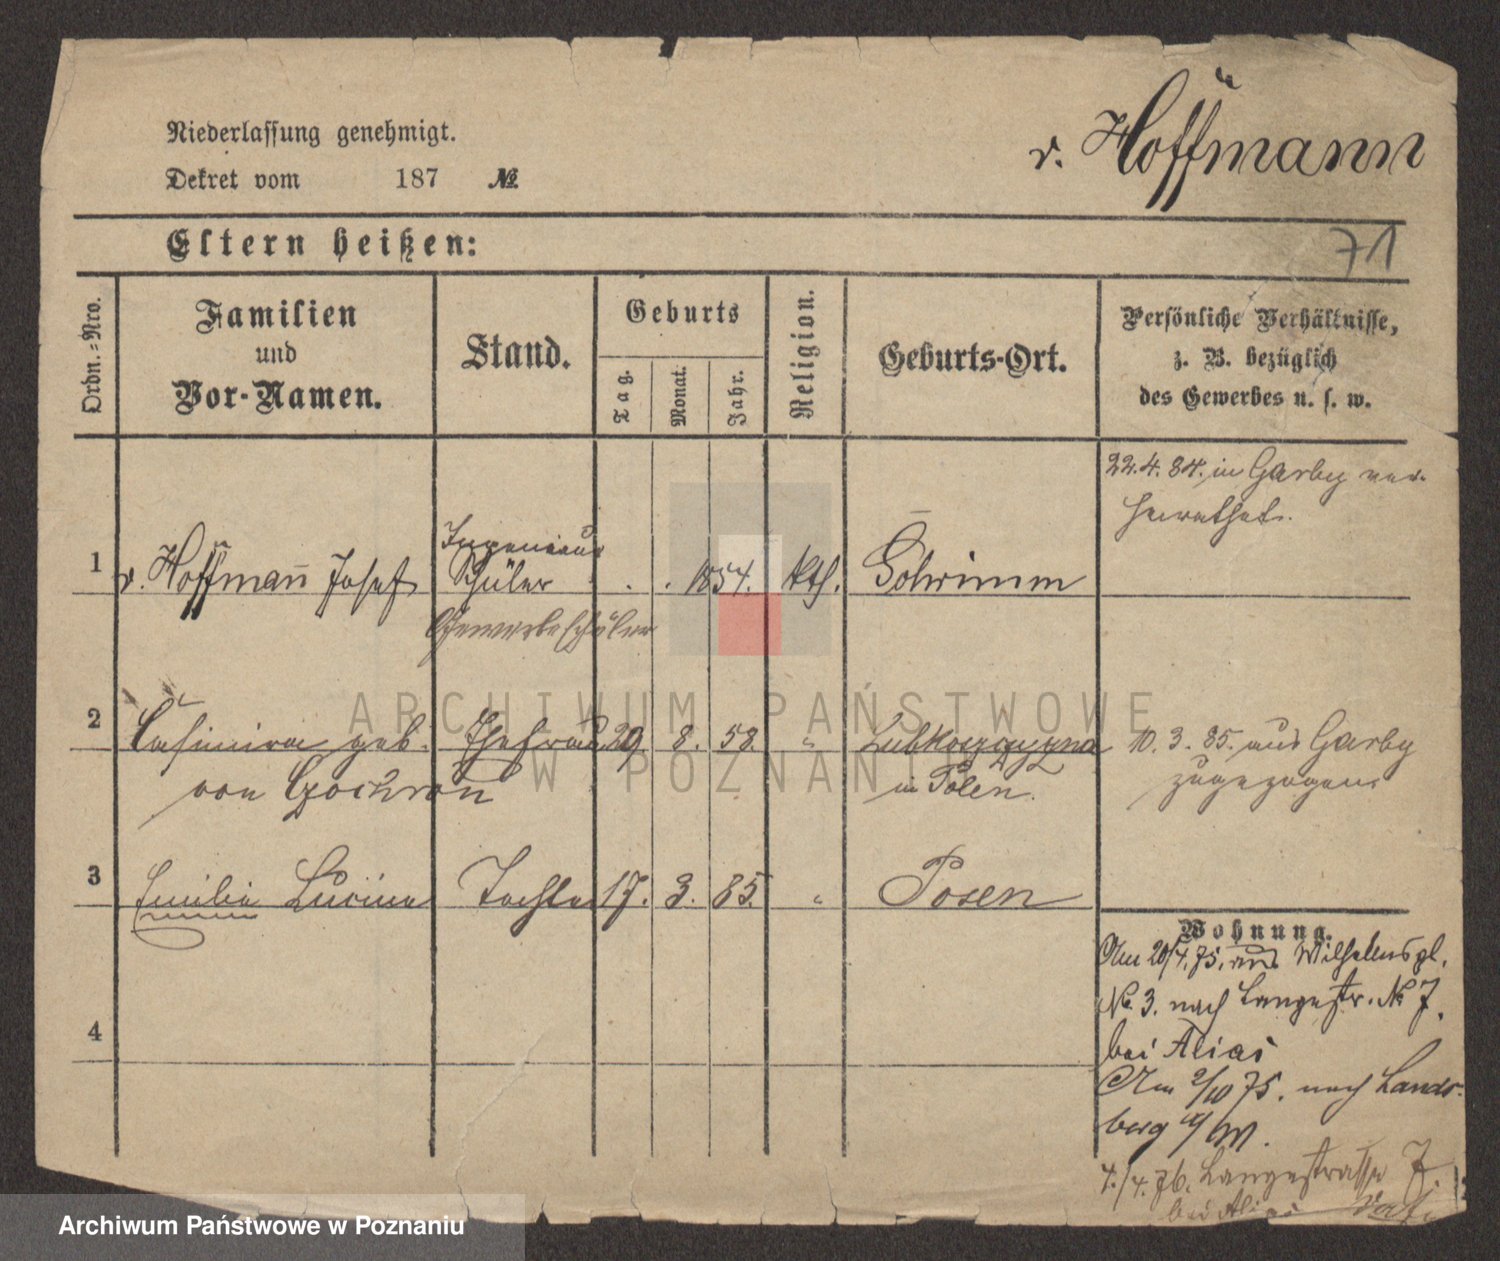 v. Hoffmann
Niederlassung genehmigt.
Dekret vom 187 №
71
Eltern heißen:
Ordn.-Nro.
Familien
und
Vor-Namen.
Stand.
Geburts
Tag.
Monat.
Jahr.
Religion.
Geburts-Ort.
Persönliche Verhältnisse,
z. B. bezüglich
des Gewerbes u. s. w.
22.4.84. in Garby ver-
heirathet.
1 v. Hoffmañ Josef Ingenieur
Schüler . . 1854. kth. Schrimm
Gewerbeschüler
2 Casimira geb. Ehefrau 29 8. 58. " 10. 3. 85. aus Garby
von in Polen. zugezogen.
3 Emilie Lucina Tochter 17. 3. 85. " Posen
Wohnung.
Am 20/4. 75. aus Wilhelmspl.
No. 3. nach Langestr. № 7.
4
bei Alias
Am 2/10 75. nach Lands-
berg a/W.
4./4. 76. Langestrasse 7.
bei Alias
ARCHIWUM PAŃSTWOWE
W POZNANIU
Archiwum Państwowe w Poznaniu